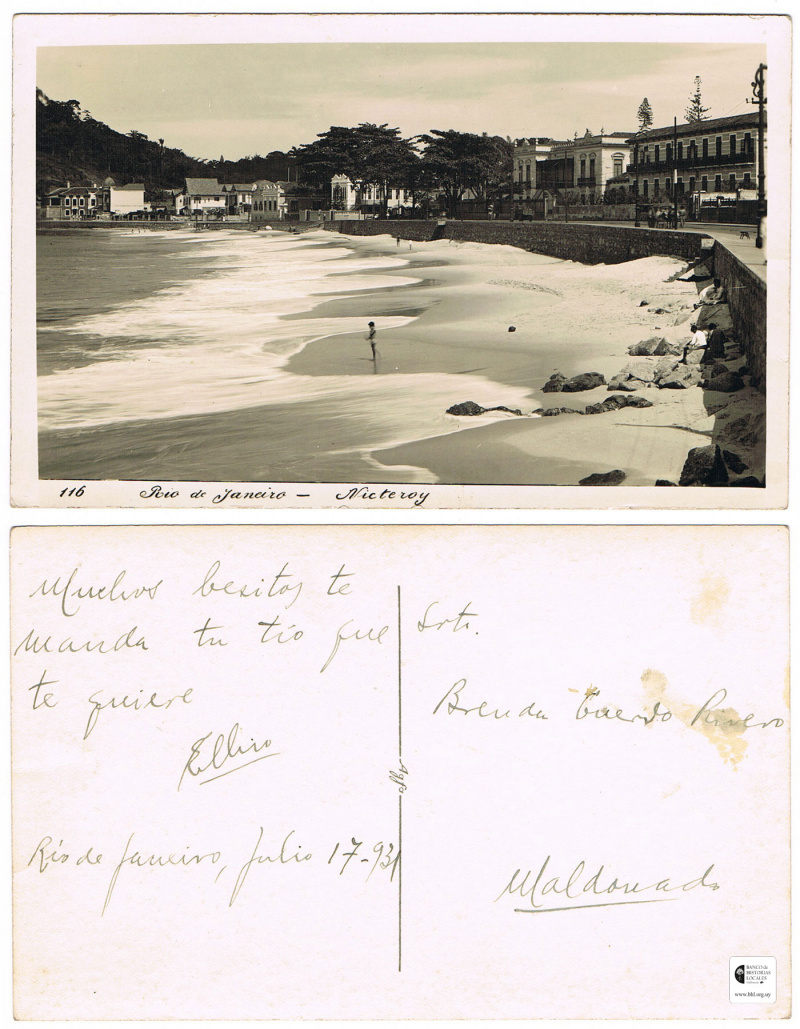 116 Rio de Janeiro — Nicteroy
Muchos besitos te
manda tu tío que
te quiere
Río de Janeiro, Julio 17-931
Agfa
Srta.
Brenda Cuerdo Rivero
Maldonado
BANCO de
HISTORIAS
LOCALES
www.bhl.org.uy